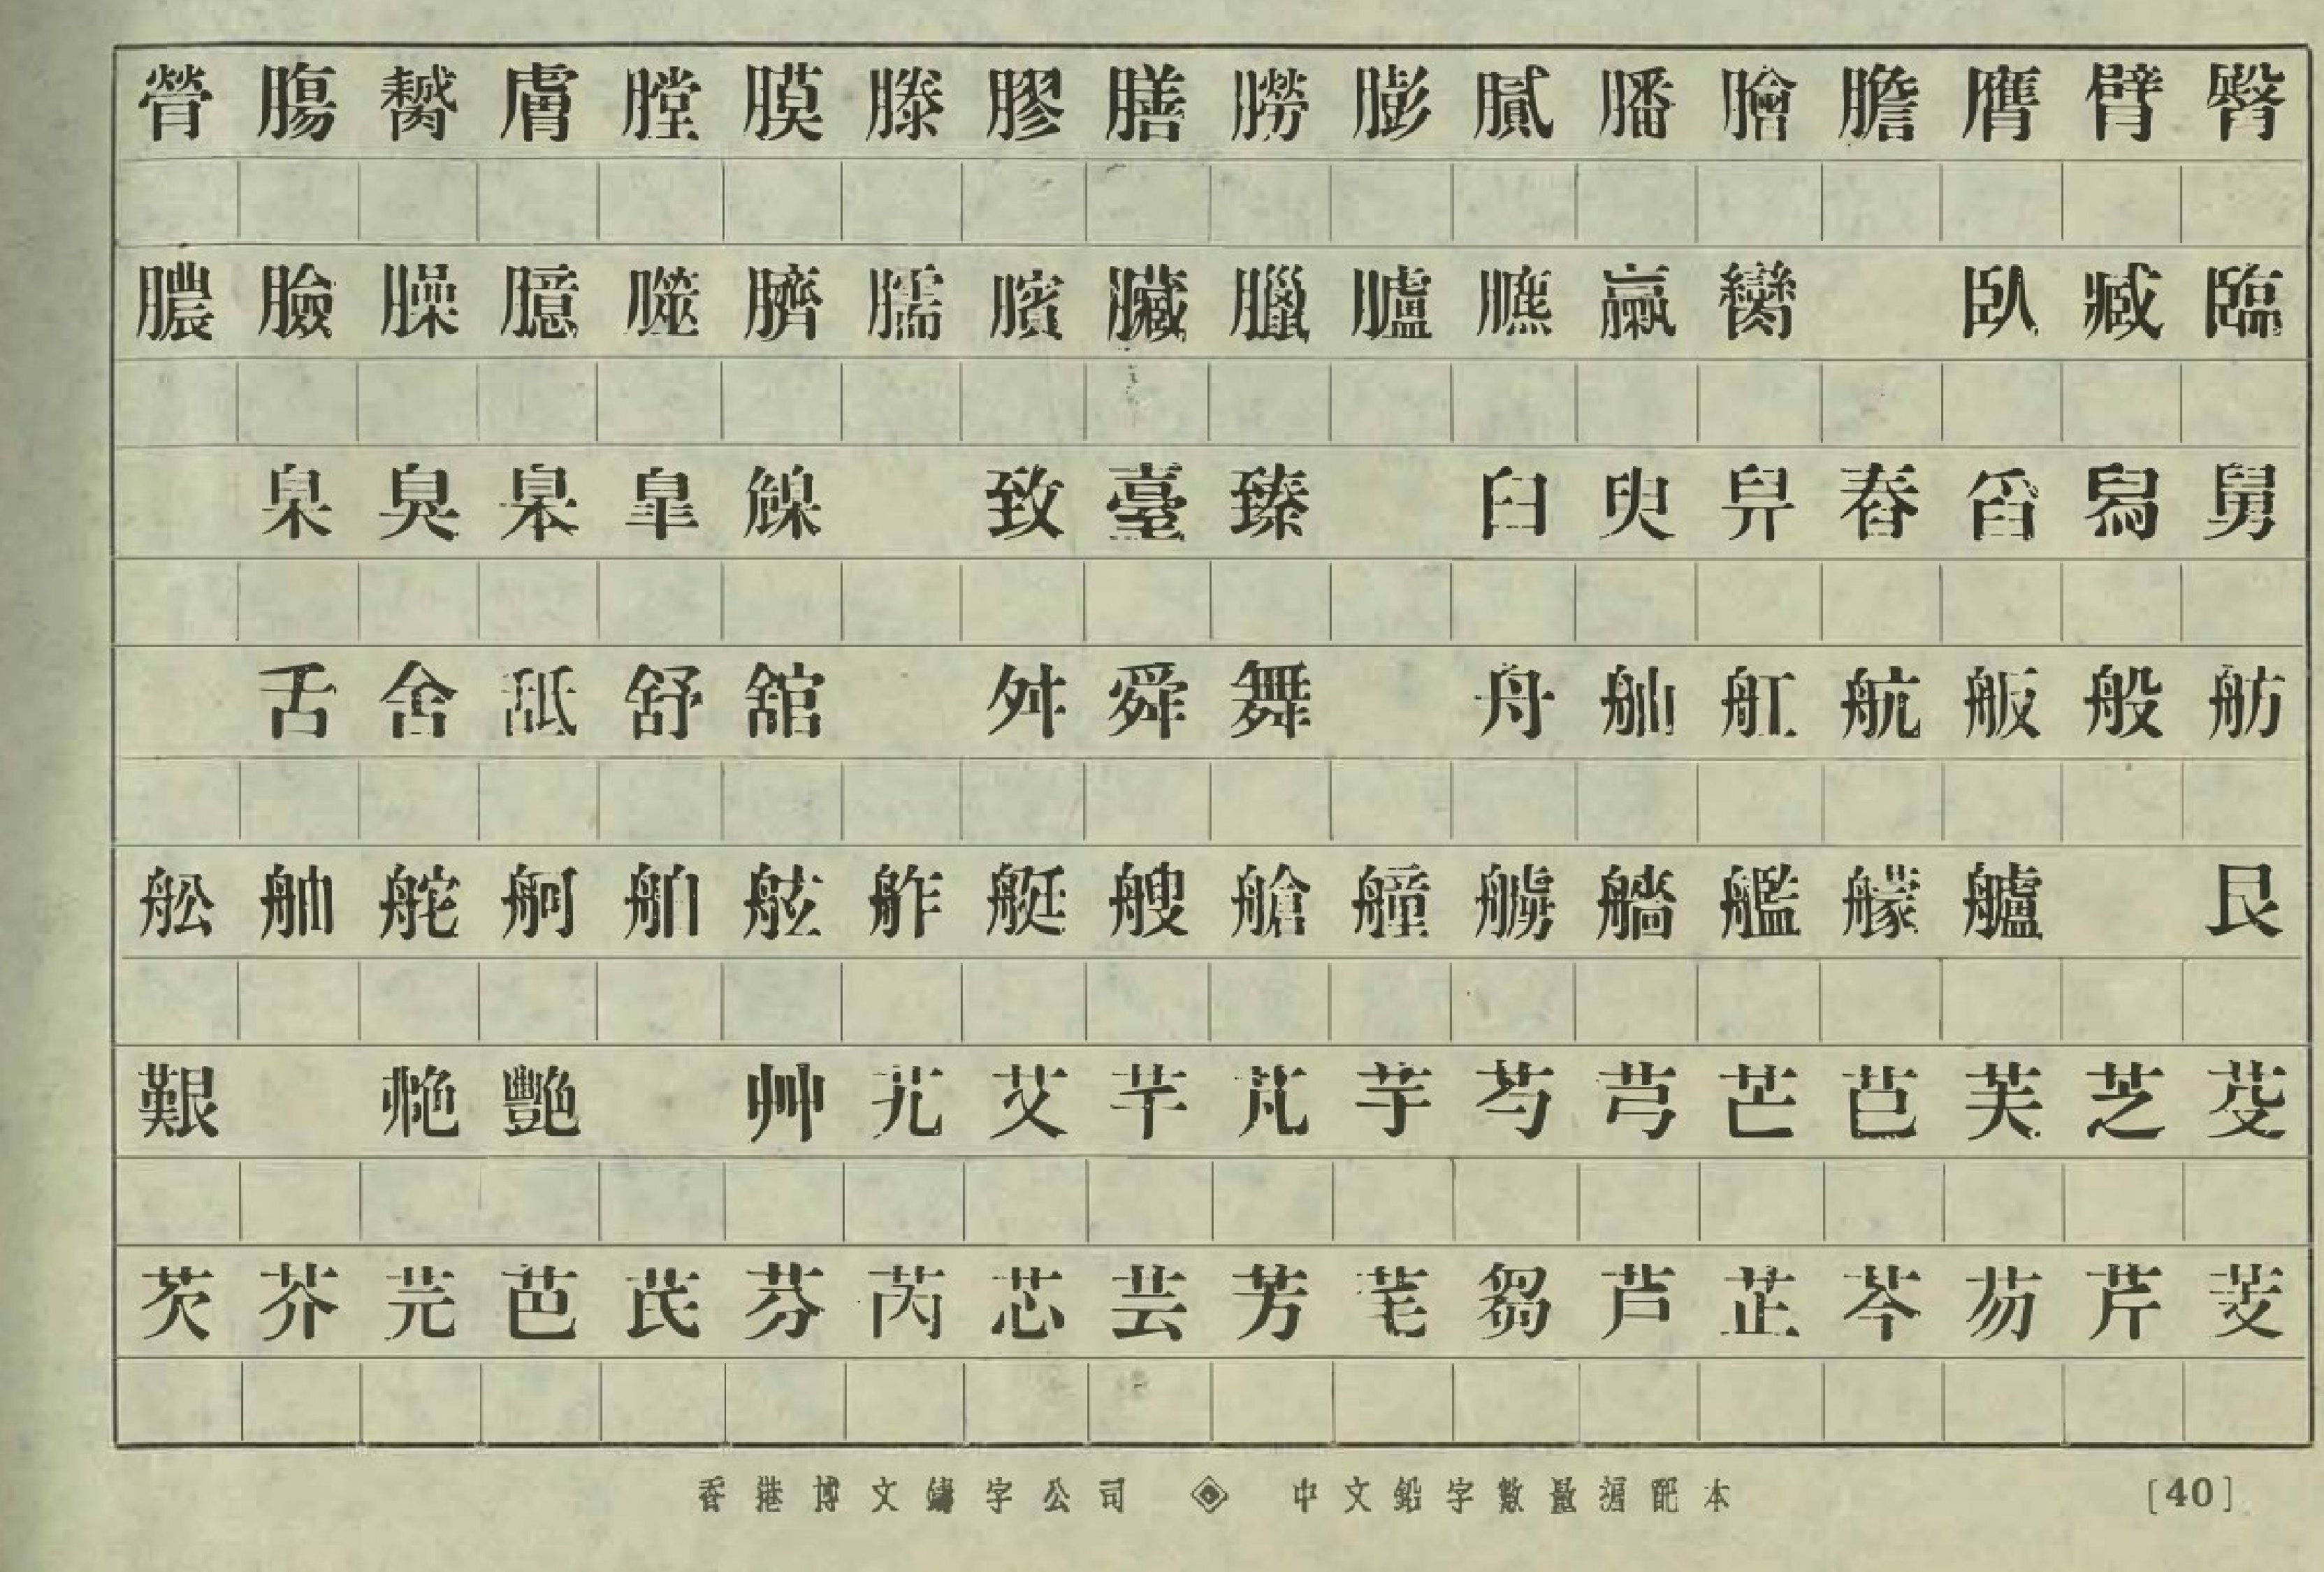 膋 腸 膚 膛 膜 滕 膠 膳 膨 膩 膰 膾 膽 膺 臂 臀
膿 臉 臊 臆 臍 臑 臏 臟 臘 臚 臕 臝 臠 臥 臧 臨
臬 臭 臯 臲 致 臺 臻 臼 臾 舁 舂 舀 舄 舅
舌 舍 舐 舒 舘 舛 舜 舞 舟 舢 舡 航 舨 般 舫
舩 舳 舵 舸 舶 舷 舴 艇 艘 艙 艟 艦 艨 艫 艮
艱 艴 艷 艸 艽 艾 芊 芃 芋 芍 芎 芒 芭 芙 芝 芟
芡 芥 芫 芭 芪 芬 芮 芯 芸 芳 芼 芻 芦 芷 芩 芴 芹 芰
香港博文鑄字公司 中文鉛字數量 配本 [40]